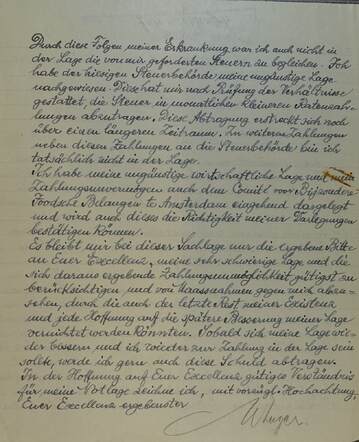 Durch diese Folgen meiner Erkrankung war ich auch nicht in
der Lage die von mir geforderten Steuern zu begleichen. Ich
habe der hiesigen Steuerbehörde meine ungünstige Lage
nachgewiesen. Diese hat mir nach Prüfung der Verhältnisse
gestattet, die Steuer in monatlichen kleineren Ratenzah-
lungen abzutragen. Diese Abtragung erstreckt sich noch
über einen längeren Zeitraum. Zu weiteren Zahlungen
neben diesen Zahlungen an die Steuerbehörde bin ich
tatsächlich nicht in der Lage.
Ich habe meine ungünstige wirtschaftliche Lage und mein
Zahlungsunvermögen auch dem Comité voor Bijzondere
Joodsche Belangen te Amsterdam eingehend dargelegt
und wird auch dieses die Richtigkeit meiner Darlegungen
bestätigen können.
Es bleibt mir bei dieser Sachlage nur die ergebene Bitte
an Euer Excellenz, meine sehr schwierige Lage und die
sich daraus ergebende Zahlungsunmöglichkeit gütigst zu
berücksichtigen und von Maassnahmen gegen mich abzu-
sehen, durch die auch der letzte Rest meiner Existenz
und jede Hoffnung auf die spätere Besserung meiner Lage
vernichtet werden könnten. Sobald sich meine Lage wie-
der bessern und ich wieder zur Zahlung in der Lage sein
sollte, werde ich gern auch diese Schuld abtragen.
In der Hoffnung auf Euer Excellenz gütiges Verständnis
für meine Notlage zeichne ich, mit vorzügl. Hochachtung
Euer Excellenz ergebenster